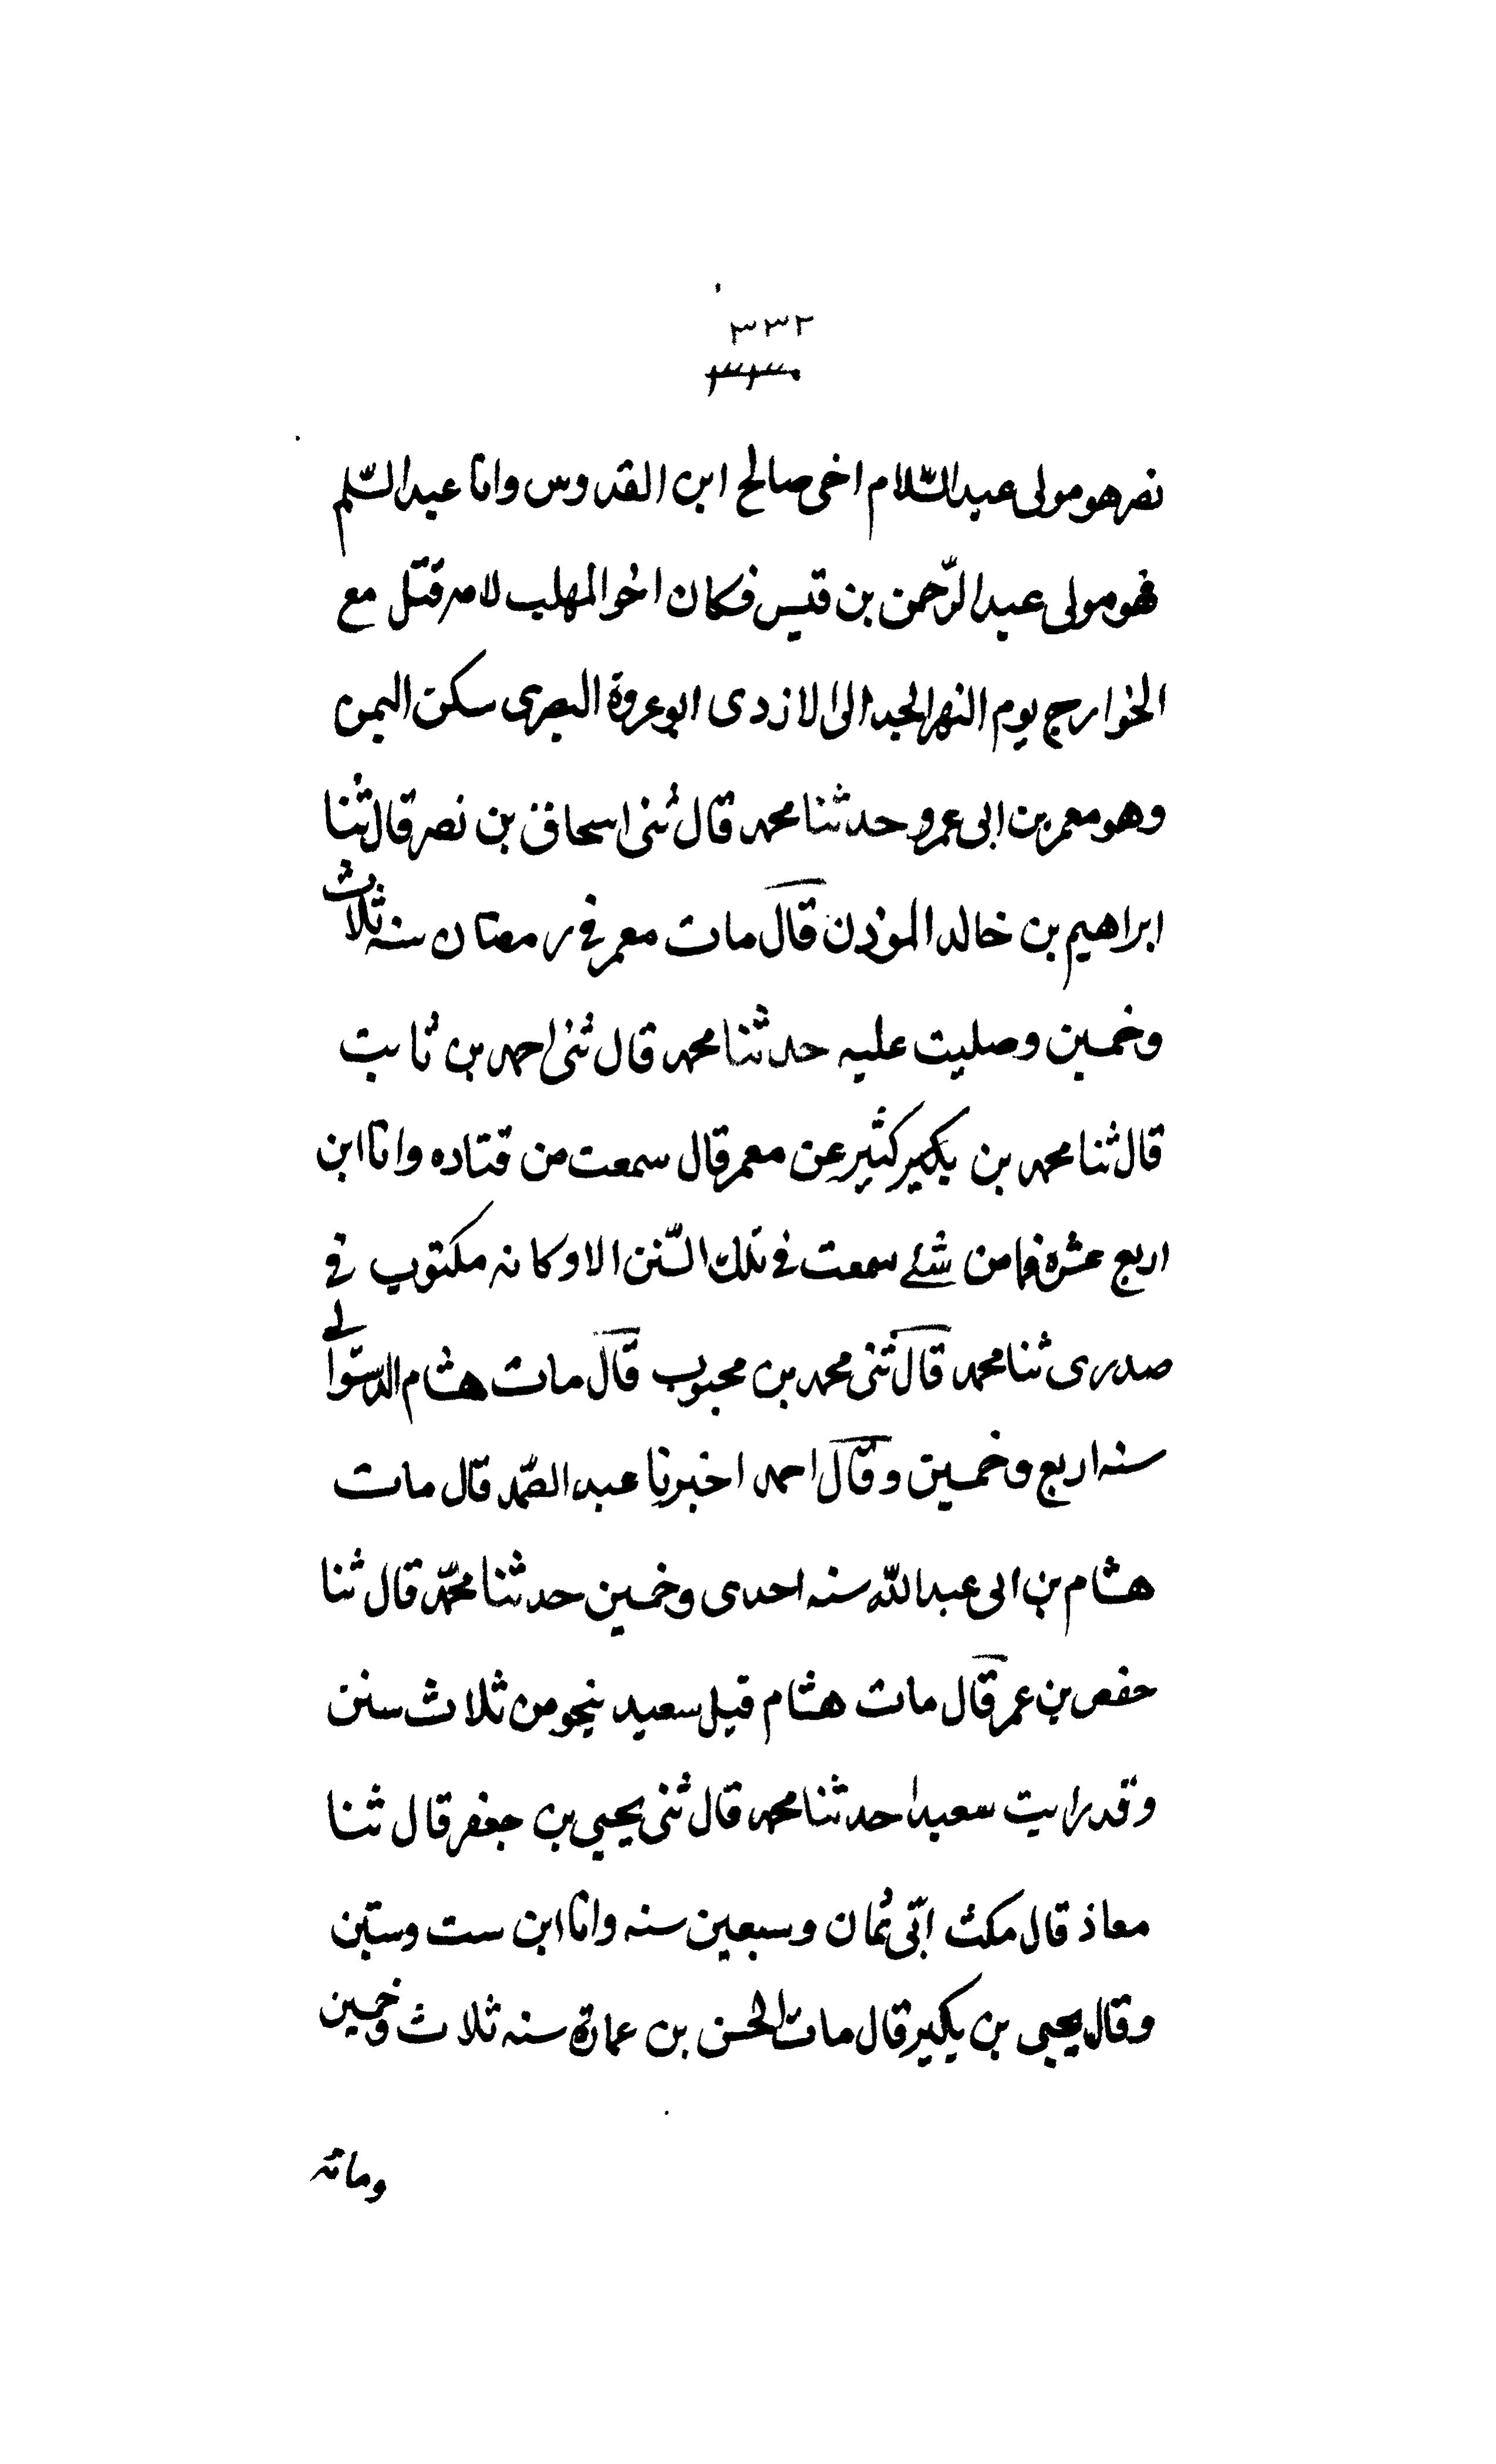 ٣٣٢
٣٣٠
نصر هو مولى عبد السّلام اخى صالح ابن القدوس وانا عبد السّلم
فهو مولى عبد الرّحمن بن قيس فكان اخو المهلب لامه قتل مع
الخوارج يوم النهر الحدانى الازدى ابو عروة البصرى سكن اليمن
وهو معمر بن ابى عمرو حدثنا محمد قال ثنى اسحاق بن نصر قال ثنا
ابراهيم بن خالد الموذن قال مات معمر فى رمضان سنه ثلاث
وخمسين وصليت عليه حدثنا محمد قال ثنى احمد بن ثابت
قال ثنا محمد بن بكير كثير عن معمر قال سمعت من قتاده وانا ابن
اربع عشره فما من شئ سمعت فى تلك السّنن الا وكانه مكتوب فى
صدرى ثنا محمد قال ثنى محمد بن محبوب قال مات هشام الدستوائى
سنه اربع وخمسين وقال احمد اخبرنا عبد الصّمد قال مات
هشام بن ابى عبد اللّه سنه احدى وخمسين حدثنا محمّد قال ثنا
حفص بن عمر قال مات هشام قبل سعيد بنحو من ثلاث سنن
وقد رايت سعيدا حدثنا محمد قال ثنى يحيى بن جعفر قال ثنا
معاذ قال مكث ابّى ثمان وسبعين سنه وانا ابن ست وستين
وقال يحيى بن بكير قال مات الحسن بن عمارة سنه ثلاث وخمسين
ومائه